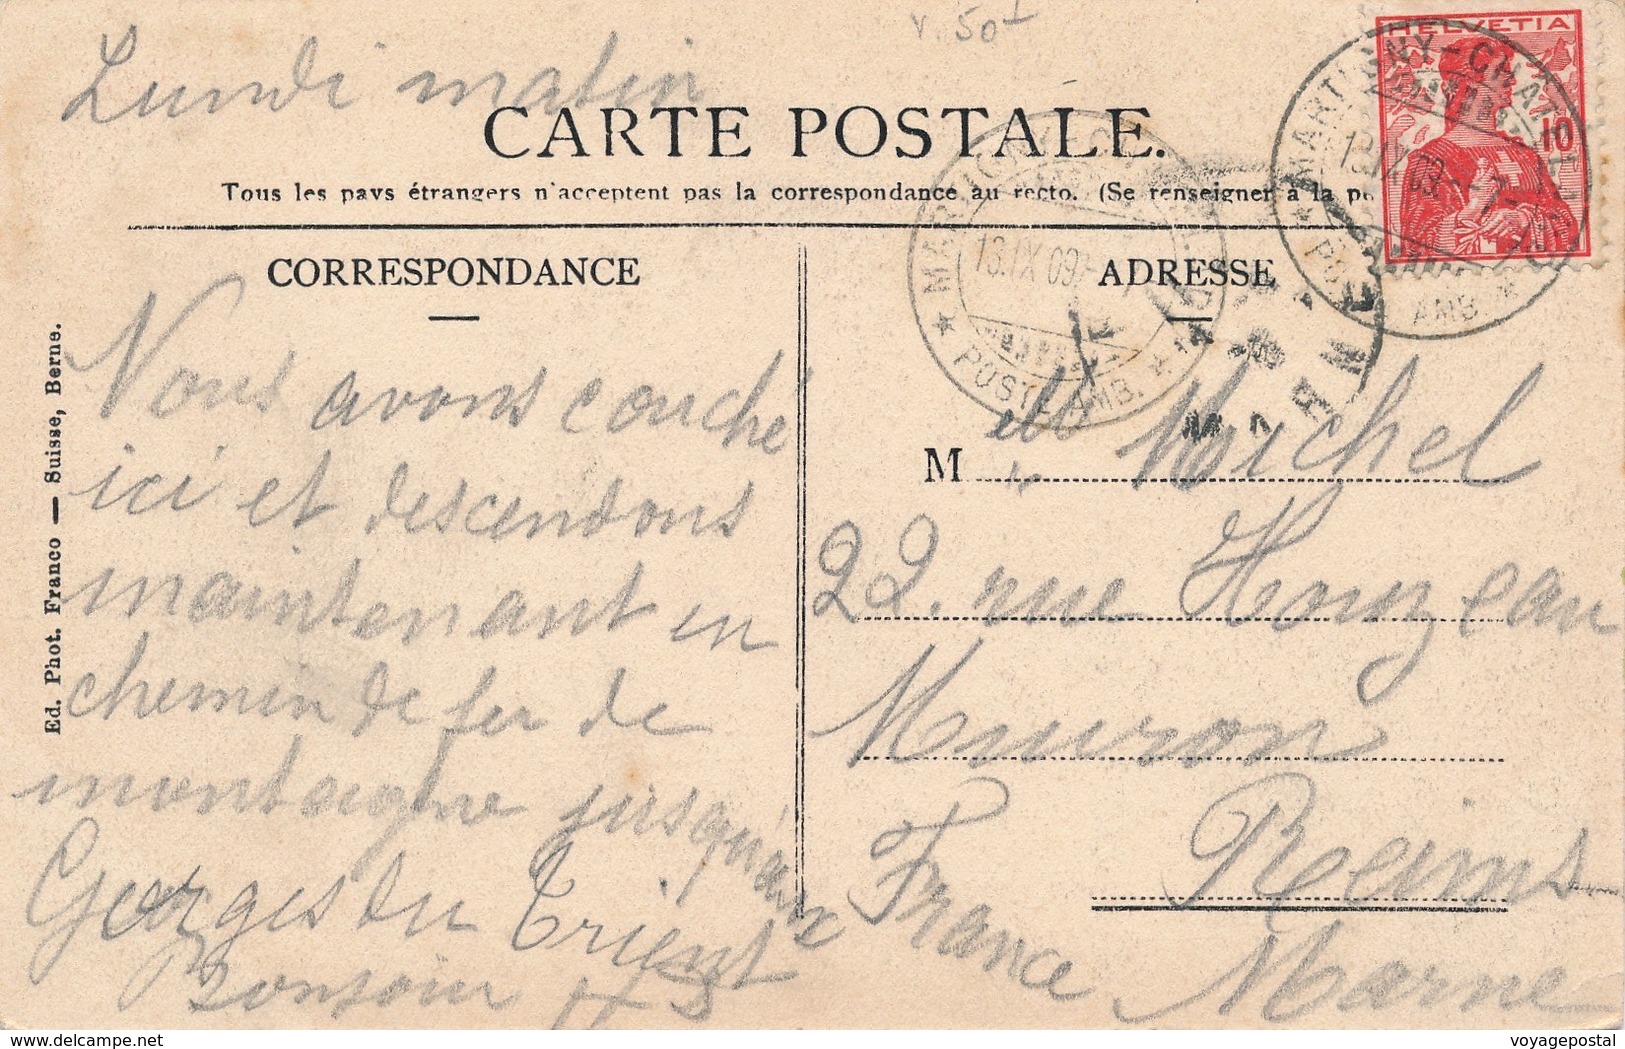 Lundi matin
v. 50
CARTE POSTALE.
Tous les pays étrangers n'acceptent pas la correspondance au recto. (Se renseigner à la
CORRESPONDANCE
ADRESSE
HELVETIA
10
MARTIGNY-CHATELARD
13.IX.09. -7-
POSTE AMB.
MARTIGNY-
13.IX.09.
POSTE AMB.
Ed. Phot. Franco — Suisse, Berne.
Nous avons couché
ici et descendons
maintenant en
chemin de fer de
montaigne jusqu'aux
Gorges du Trient
Bonsoir
M elle Michel
22. rue Houzeau
Muiron
Reims
France Marne
voyagepostal
www.delcampe.net